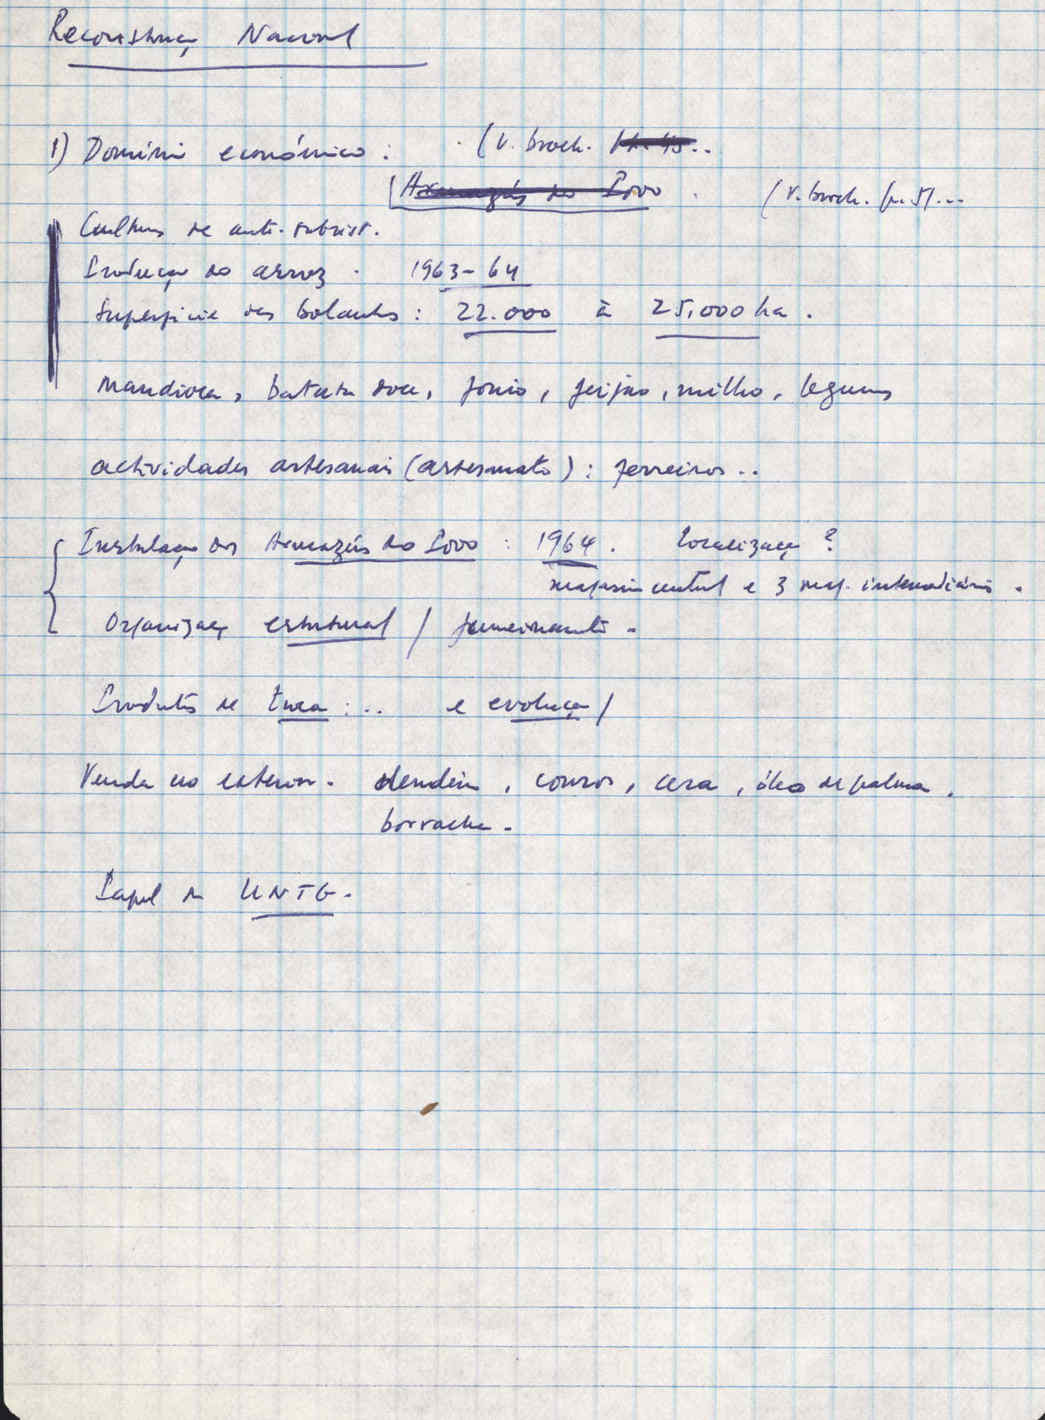 Reconstrução Nacional
1) Domínio económico : (V. broch.
Armazéns do Povo . (V. broch. p. 51...
Cultura de auto-subsist.
Produção do arroz . 1963-64
Superfície das bolanhas : 22.000 à 25.000 ha .
mandioca, batata doce, fonio, feijão, milho, legumes
actividades artesanais (artesanato) : ferreiros ..
Instalação dos Armazéns do Povo : 1964 . Localização ?
magasin central e 3 mag. intermediários .
Organização estrutural / funcionamento .
Produtos de troca : .. e evolução /
Venda no exterior . dendém, couros, cera, óleo de palma,
borracha .
Papel da UNTG .